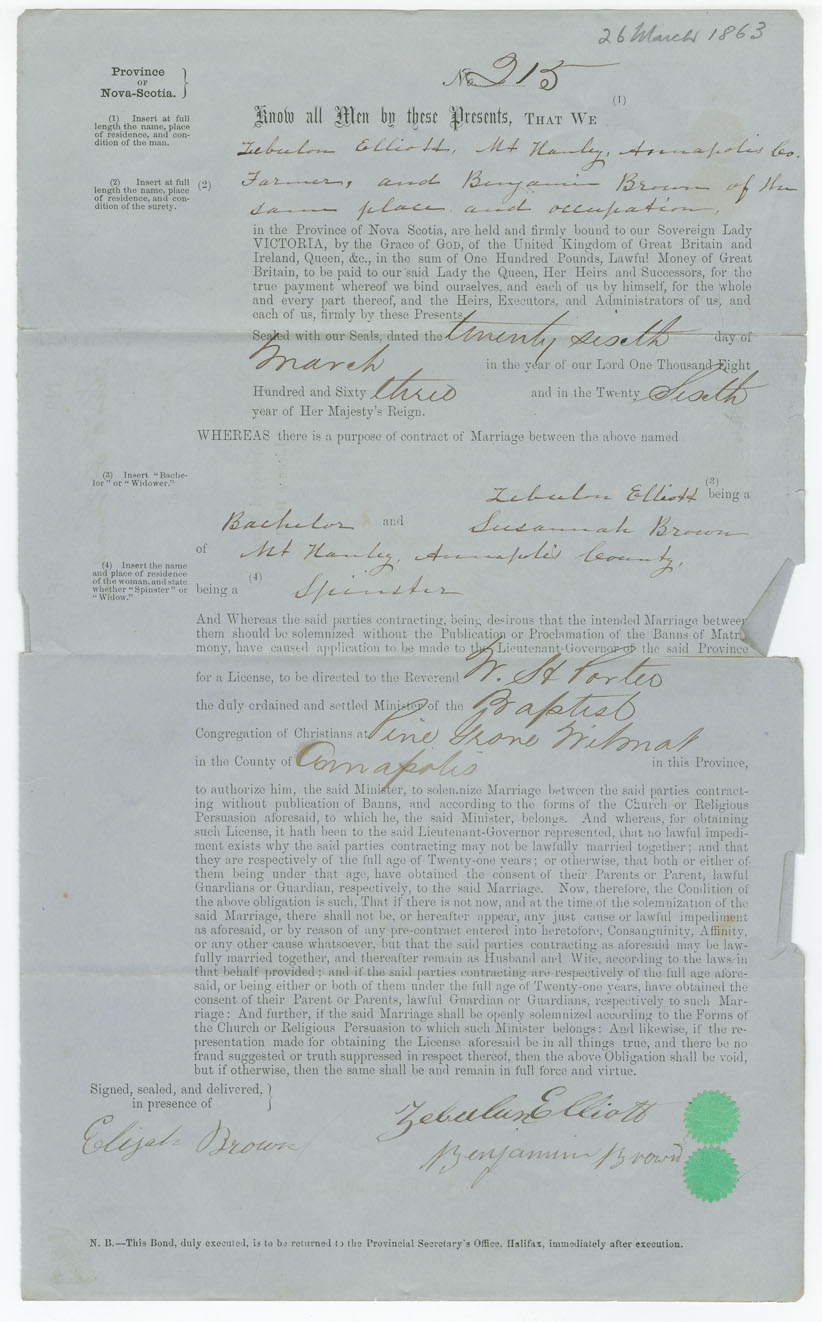 26 March 1863
Province
OF
Nova-Scotia.
No 215
(1) Insert at full
length the name, place
of residence, and con-
dition of the man.
(1)
Know all Men by these Presents, THAT WE
Zebulon Elliott, Mt Hanley, Annapolis Co.
(2) Insert at full
length the name, place
of residence, and con-
dition of the surety.
(2) Farmer, and Benjamin Brown of the
same place and occupation,
in the Province of Nova Scotia, are held and firmly bound to our Sovereign Lady
VICTORIA, by the Grace of GOD, of the United Kingdom of Great Britain and
Ireland, Queen, &c., in the sum of One Hundred Pounds, Lawful Money of Great
Britain, to be paid to our said Lady the Queen, Her Heirs and Successors, for the
true payment whereof we bind ourselves, and each of us by himself, for the whole
and every part thereof, and the Heirs, Executors, and Administrators of us, and
each of us, firmly by these Presents.
Sealed with our Seals, dated the twenty sixth day of
March in the year of our Lord One Thousand Eight
Hundred and Sixty three and in the Twenty Sixth
year of Her Majesty's Reign.
WHEREAS there is a purpose of contract of Marriage between the above named
(3) Insert "Bache-
lor" or "Widower."
Zebulon Elliott (3) being a
Bachelor and Susannah Brown
of Mt Hanley, Annapolis County,
(4) Insert the name
and place of residence
of the woman, and state
whether "Spinster" or
"Widow."
being a (4) Spinster
And Whereas the said parties contracting, being desirous that the intended Marriage between
them should be solemnized without the Publication or Proclamation of the Banns of Matri-
mony, have caused application to be made to the Lieutenant-Governor of the said Province
for a License, to be directed to the Reverend W. H Porter
the duly ordained and settled Minister of the Baptist
Congregation of Christians at Pine Grove Wilmot
in the County of Annapolis in this Province,
to authorize him, the said Minister, to solemnize Marriage between the said parties contract-
ing without publication of Banns, and according to the forms of the Church or Religious
Persuasion aforesaid, to which he, the said Minister, belongs. And whereas, for obtaining
such License, it hath been to the said Lieutenant-Governor represented, that no lawful impedi-
ment exists why the said parties contracting may not be lawfully married together; and that
they are respectively of the full age of Twenty-one years; or otherwise, that both or either of
them being under that age, have obtained the consent of their Parents or Parent, lawful
Guardians or Guardian, respectively, to the said Marriage. Now, therefore, the Condition of
the above obligation is such, That if there is not now, and at the time of the solemnization of the
said Marriage, there shall not be, or hereafter appear, any just cause or lawful impediment
as aforesaid, or by reason of any pre-contract entered into heretofore, Consanguinity, Affinity,
or any other cause whatsoever, but that the said parties contracting as aforesaid may be law-
fully married together, and thereafter remain as Husband and Wife, according to the laws in
that behalf provided; and if the said parties contracting are respectively of the full age afore-
said, or being either or both of them under the full age of Twenty-one years, have obtained the
consent of their Parent or Parents, lawful Guardian or Guardians, respectively to such Mar-
riage: And further, if the said Marriage shall be openly solemnized according to the Forms of
the Church or Religious Persuasion to which such Minister belongs: And likewise, if the re-
presentation made for obtaining the License aforesaid be in all things true, and there be no
fraud suggested or truth suppressed in respect thereof, then the above Obligation shall be void,
but if otherwise, then the same shall be and remain in full force and virtue.
Signed, sealed, and delivered,
in presence of
Zebulun Elliott
Elijah Brown
Benjamin Brown
N. B.—This Bond, duly executed, is to be returned to the Provincial Secretary's Office, Halifax, immediately after execution.